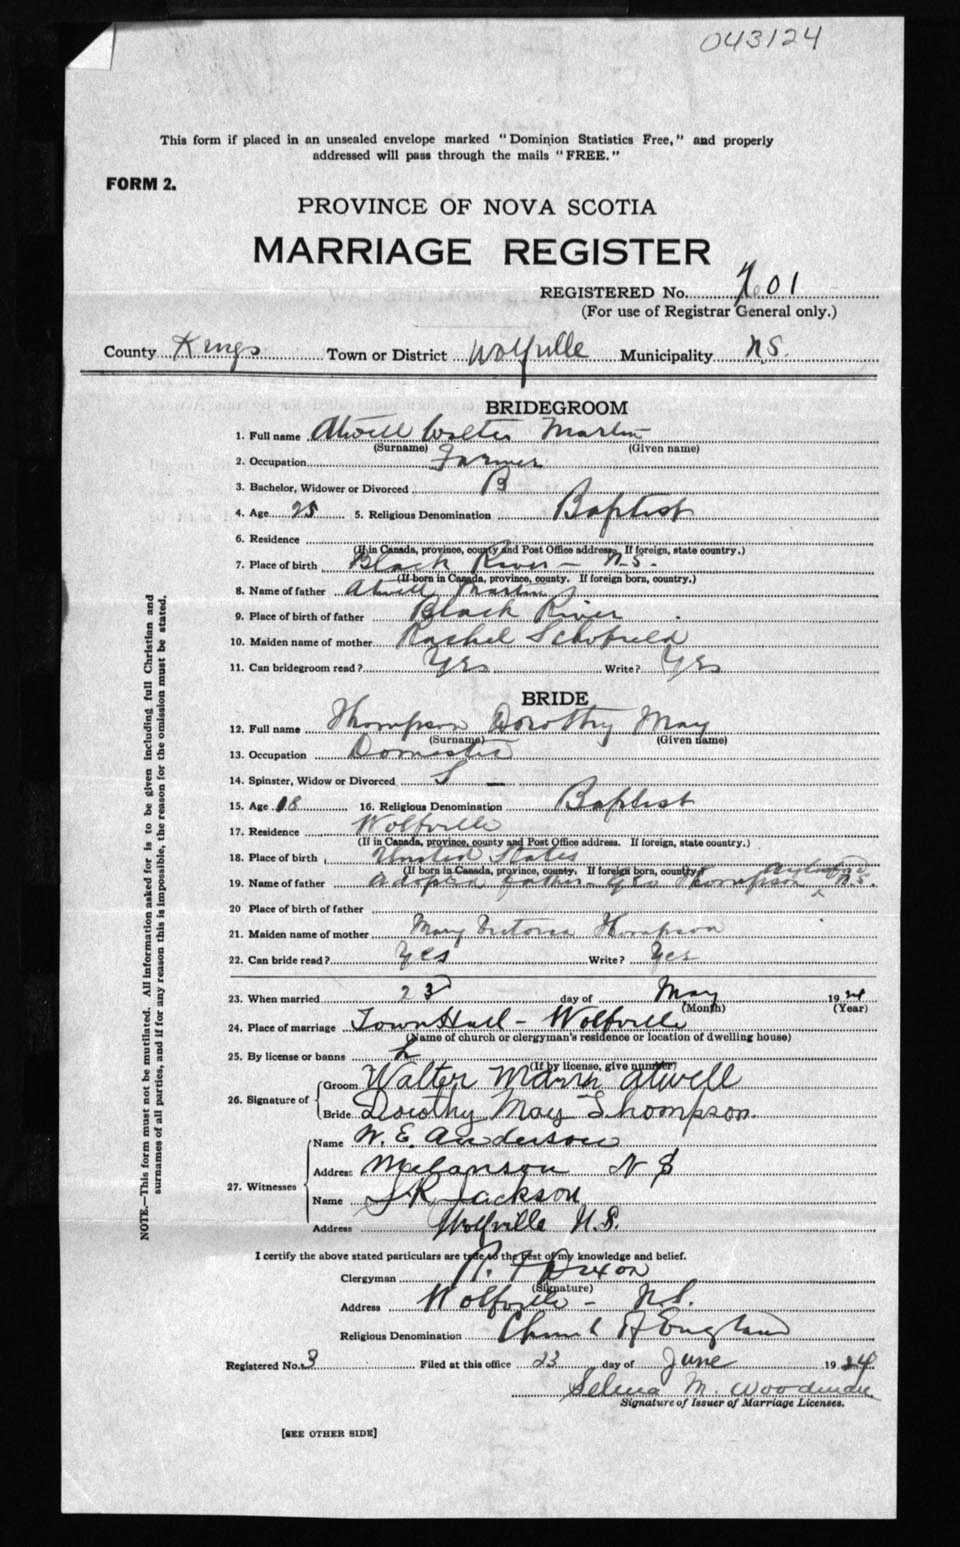 043124
This form if placed in an unsealed envelope marked "Dominion Statistics Free," and properly
addressed will pass through the mails "FREE."
FORM 2.
PROVINCE OF NOVA SCOTIA
MARRIAGE REGISTER
REGISTERED No. 01
(For use of Registrar General only.)
County Kings Town or District Wolfville Municipality N.S.
BRIDEGROOM
1. Full name Atwell Walter Martin
(Surname) (Given name)
2. Occupation Farmer
3. Bachelor, Widower or Divorced B
4. Age 25 5. Religious Denomination Baptist
6. Residence
(If in Canada, province, county and Post Office address. If foreign, state country.)
7. Place of birth Black River - N.S.
(If born in Canada, province, county. If foreign born, country.)
8. Name of father Atwell Martin
9. Place of birth of father Black River
10. Maiden name of mother Rachel Schofield
11. Can bridegroom read? Yes Write? Yes
BRIDE
12. Full name Thompson Dorothy May
(Surname) (Given name)
13. Occupation Domestic
14. Spinster, Widow or Divorced S
15. Age 18 16. Religious Denomination Baptist
17. Residence Wolfville
(If in Canada, province, county and Post Office address. If foreign, state country.)
18. Place of birth United States
(If born in Canada, province, county. If foreign born, country.)
19. Name of father adopted father - Geo Thompson N.S.
20 Place of birth of father
21. Maiden name of mother Mary Victoria Thompson
22. Can bride read? Yes Write? Yes
23. When married 23 day of May 1924
(Month) (Year)
24. Place of marriage Town Hall - Wolfville
(Name of church or clergyman's residence or location of dwelling house)
25. By license or banns L
(If by license, give number)
26. Signature of Groom Walter Atwell
Bride Dorothy May Thompson
27. Witnesses Name W. E. Anderson
Address Melanson N S
Name Jackson
Address Wolfville N.S.
I certify the above stated particulars are true to the best of my knowledge and belief.
Clergyman R. F Dixon
(Signature)
Address Wolfville - N.S.
Religious Denomination Church of England
Registered No. 3 Filed at this office 23 day of June 1924
Selena M. Woodman
Signature of Issuer of Marriage Licenses.
[SEE OTHER SIDE]
NOTE.—This form must not be mutilated. All information asked for is to be given including full Christian and
surnames of all parties, and if for any reason this is impossible, the reason for the omission must be stated.